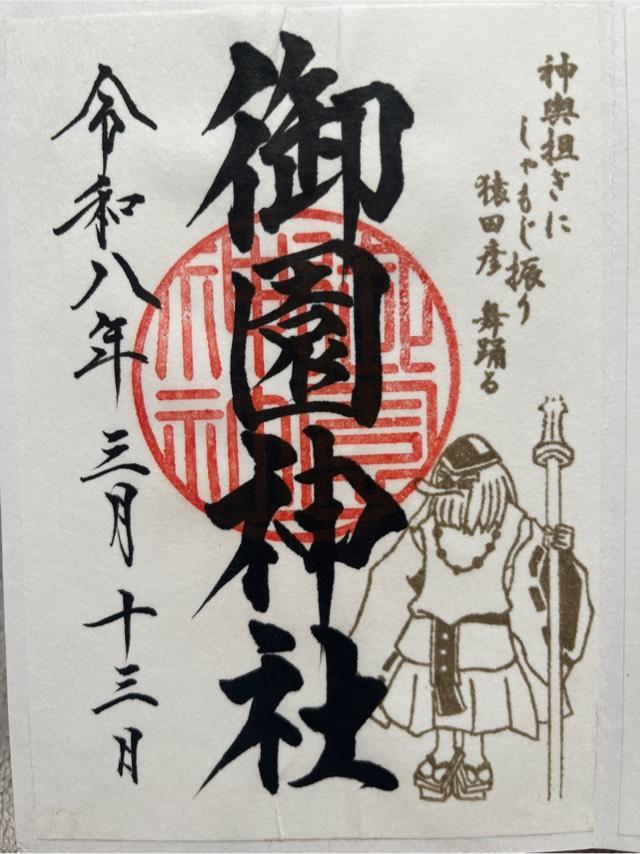 神輿担ぎに
しゃもじ振り
猿田彦 舞踊る
御園神社
令和八年三月十三日